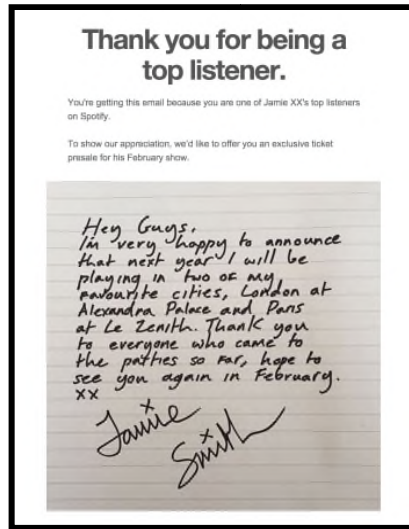 Thank you for being a
top listener.
You're getting this email because you are one of Jamie XX's top listeners
on Spotify.
To show our appreciation, we'd like to offer you an exclusive ticket
presale for his February show.
Hey Guys,
I'm very happy to announce
that next year I will be
playing in two of my
favourite cities, London at
Alexandra Palace and Paris
at Le Zenith. Thank you
to everyone who came to
the parties so far, hope to
see you again in February.
xx
Jamie
Smith